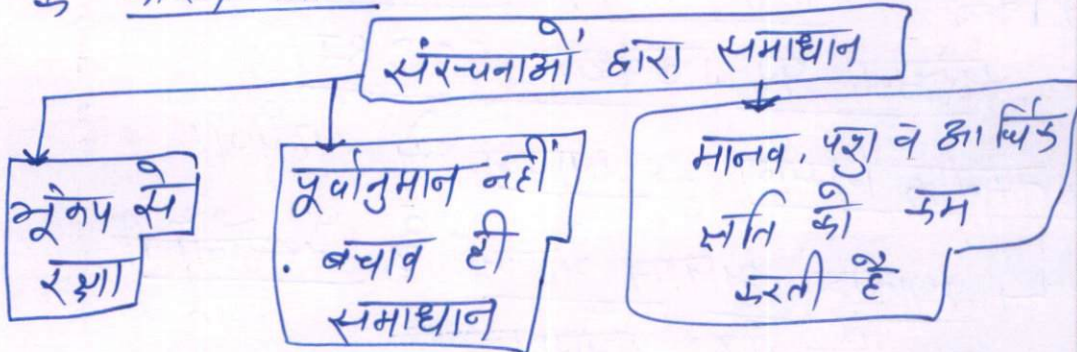 संरचनाओं द्वारा समाधान
भूकंप से
रक्षा
पूर्वानुमान नहीं
बचाव ही
समाधान
मानव, पशु व आर्थिक
क्षति को कम
करती है